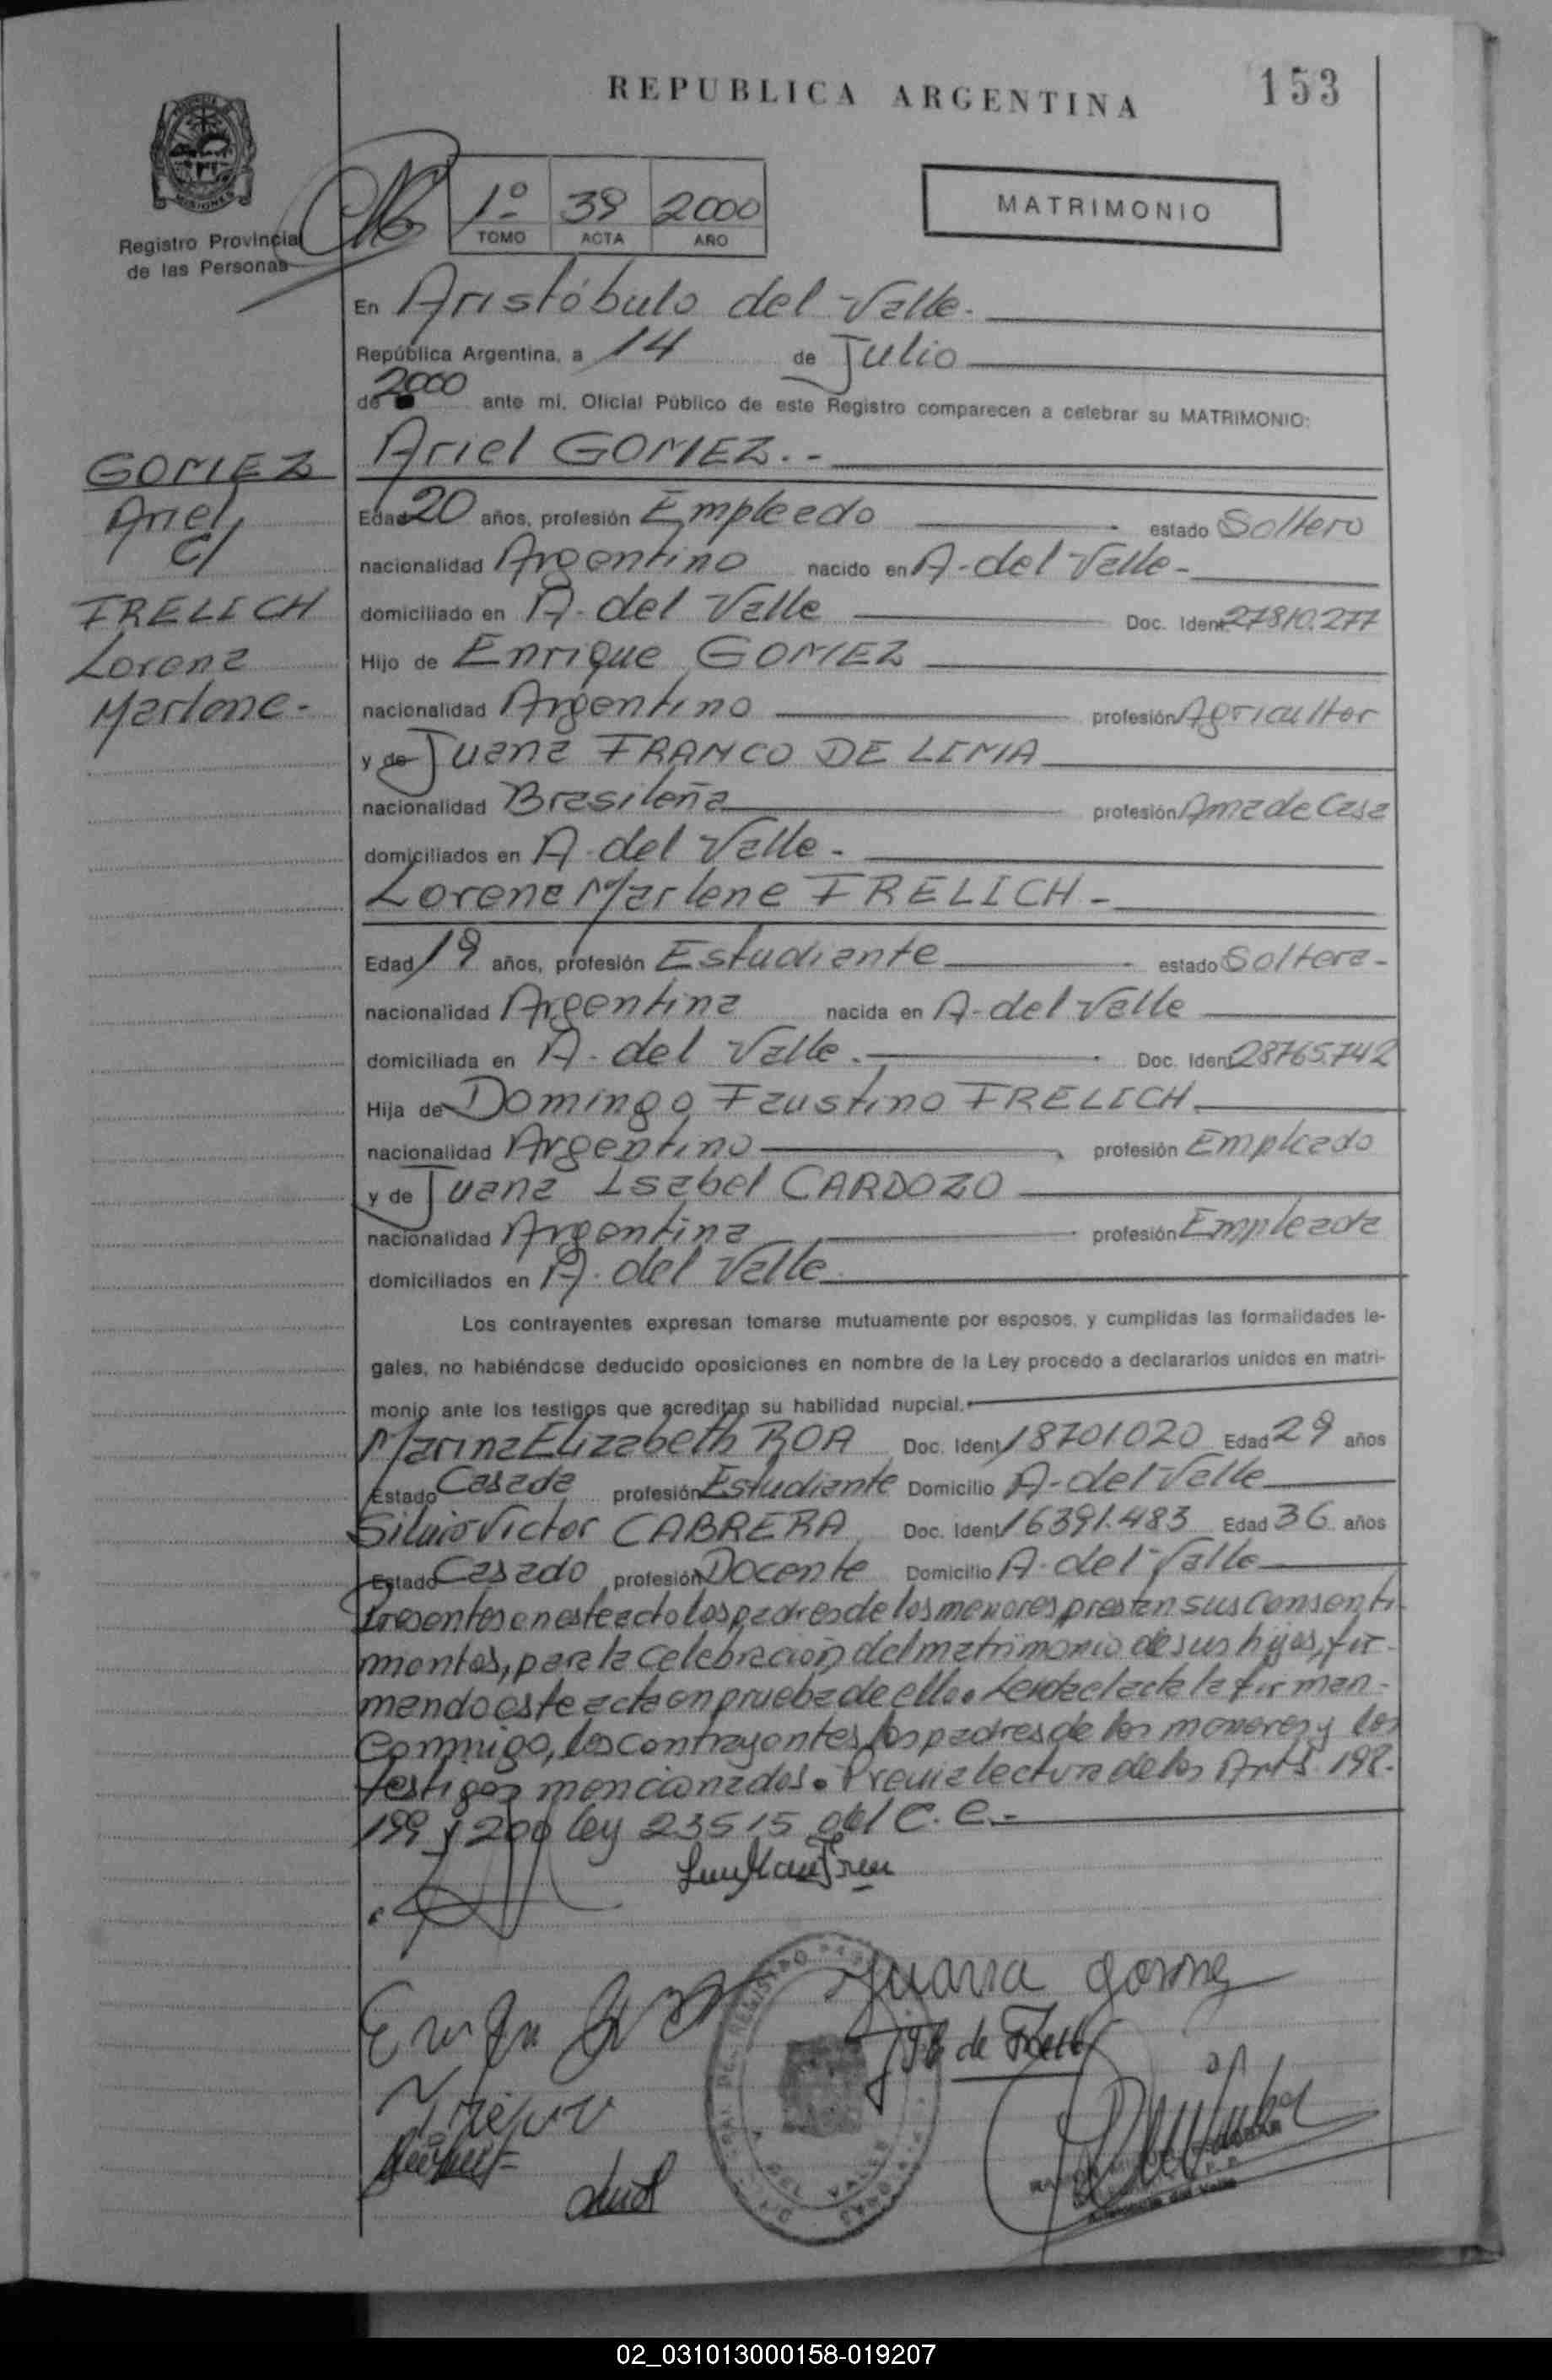 REPUBLICA ARGENTINA
153
MISIONES
Registro Provincial
de las Personas
1º 39 2000
TOMO ACTA AÑO
MATRIMONIO
En Aristóbulo del Valle.
República Argentina, a 14 de Julio
de 2000 ante mi, Oficial Público de este Registro comparecen a celebrar su MATRIMONIO:
GOMEZ
Ariel
c/
FRELICH
Lorena
Marlene-
Ariel GOMEZ.-
Edad 20 años, profesión Empleado estado Soltero
nacionalidad Argentino nacido en A-del Valle-
domiciliado en A-del Valle Doc. Ident. 27810.277
Hijo de Enrique GOMEZ
nacionalidad Argentino profesión Agricultor
y de Juana FRANCO DE LIMA
nacionalidad Brasileña profesión Ama de Casa
domiciliados en A-del Valle-
Lorena Marlene FRELICH-
Edad 19 años, profesión Estudiante estado Soltera-
nacionalidad Argentina nacida en A-del Valle
domiciliada en A-del Valle. Doc. Ident. 28765.742
Hija de Domingo Faustino FRELICH
nacionalidad Argentino profesión Empleado
y de Juana Isabel CARDOZO
nacionalidad Argentina profesión Empleada
domiciliados en A.del Valle
Los contrayentes expresan tomarse mutuamente por esposos, y cumplidas las formalidades le-
gales, no habiéndose deducido oposiciones en nombre de la Ley procedo a declararlos unidos en matri-
monio ante los testigos que acreditan su habilidad nupcial.
Marina Elizabeth ROA Doc. Ident. 18701020 Edad 29 años
Estado Casada profesión Estudiante Domicilio A-del Valle
Silvio Victor CABRERA Doc. Ident. 16391.483 Edad 36 años
Estado Casado profesión Docente Domicilio A-del Valle
Presentes en este acto los padres de los menores prestan sus consenti-
mentos, para la celebración del matrimonio de sus hijos, fir-
mando este acta en prueba de ello. Leida el acta la firman-
conmigo, los contrayentes, los padres de los menores y los
testigos mencionados. Previa lectura de los Arts. 198.
199 y 200 ley 23515 del C. C.-
Juana Gomez
de
DEL VALLE
Aristóbulo del Valle
02_031013000158-019207